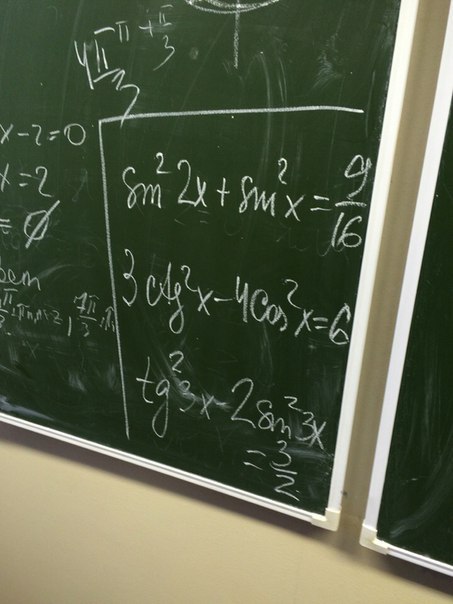 4π/3 - π + π/3
x - 2 = 0
x = 2
= ∅
sin² 2x + sin² x = 9/16
3 ctg² x - 4 cos² x = 6
tg² 3x - 2 sin² 3x
= 3/2